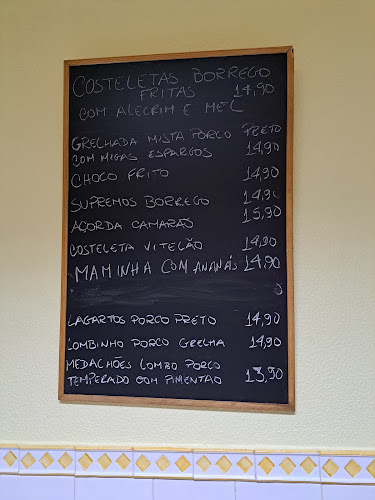 COSTELETAS BORREGO
FRITAS 14,90
COM ALECRIM E MEL
GRELHADA MISTA PORCO PRETO
COM MIGAS ESPARGOS 14,90
CHOCO FRITO 14,90
SUPREMOS BORREGO 14,90
AÇORDA CAMARÃO 15,90
COSTELETA VITELÃO 14,90
MAMINHA COM ANANÁS 14,90
LAGARTOS PORCO PRETO 14,90
LOMBINHO PORCO GRELHA 14,90
MEDALHÕES LOMBO PORCO
TEMPERADO COM PIMENTÃO 13,90